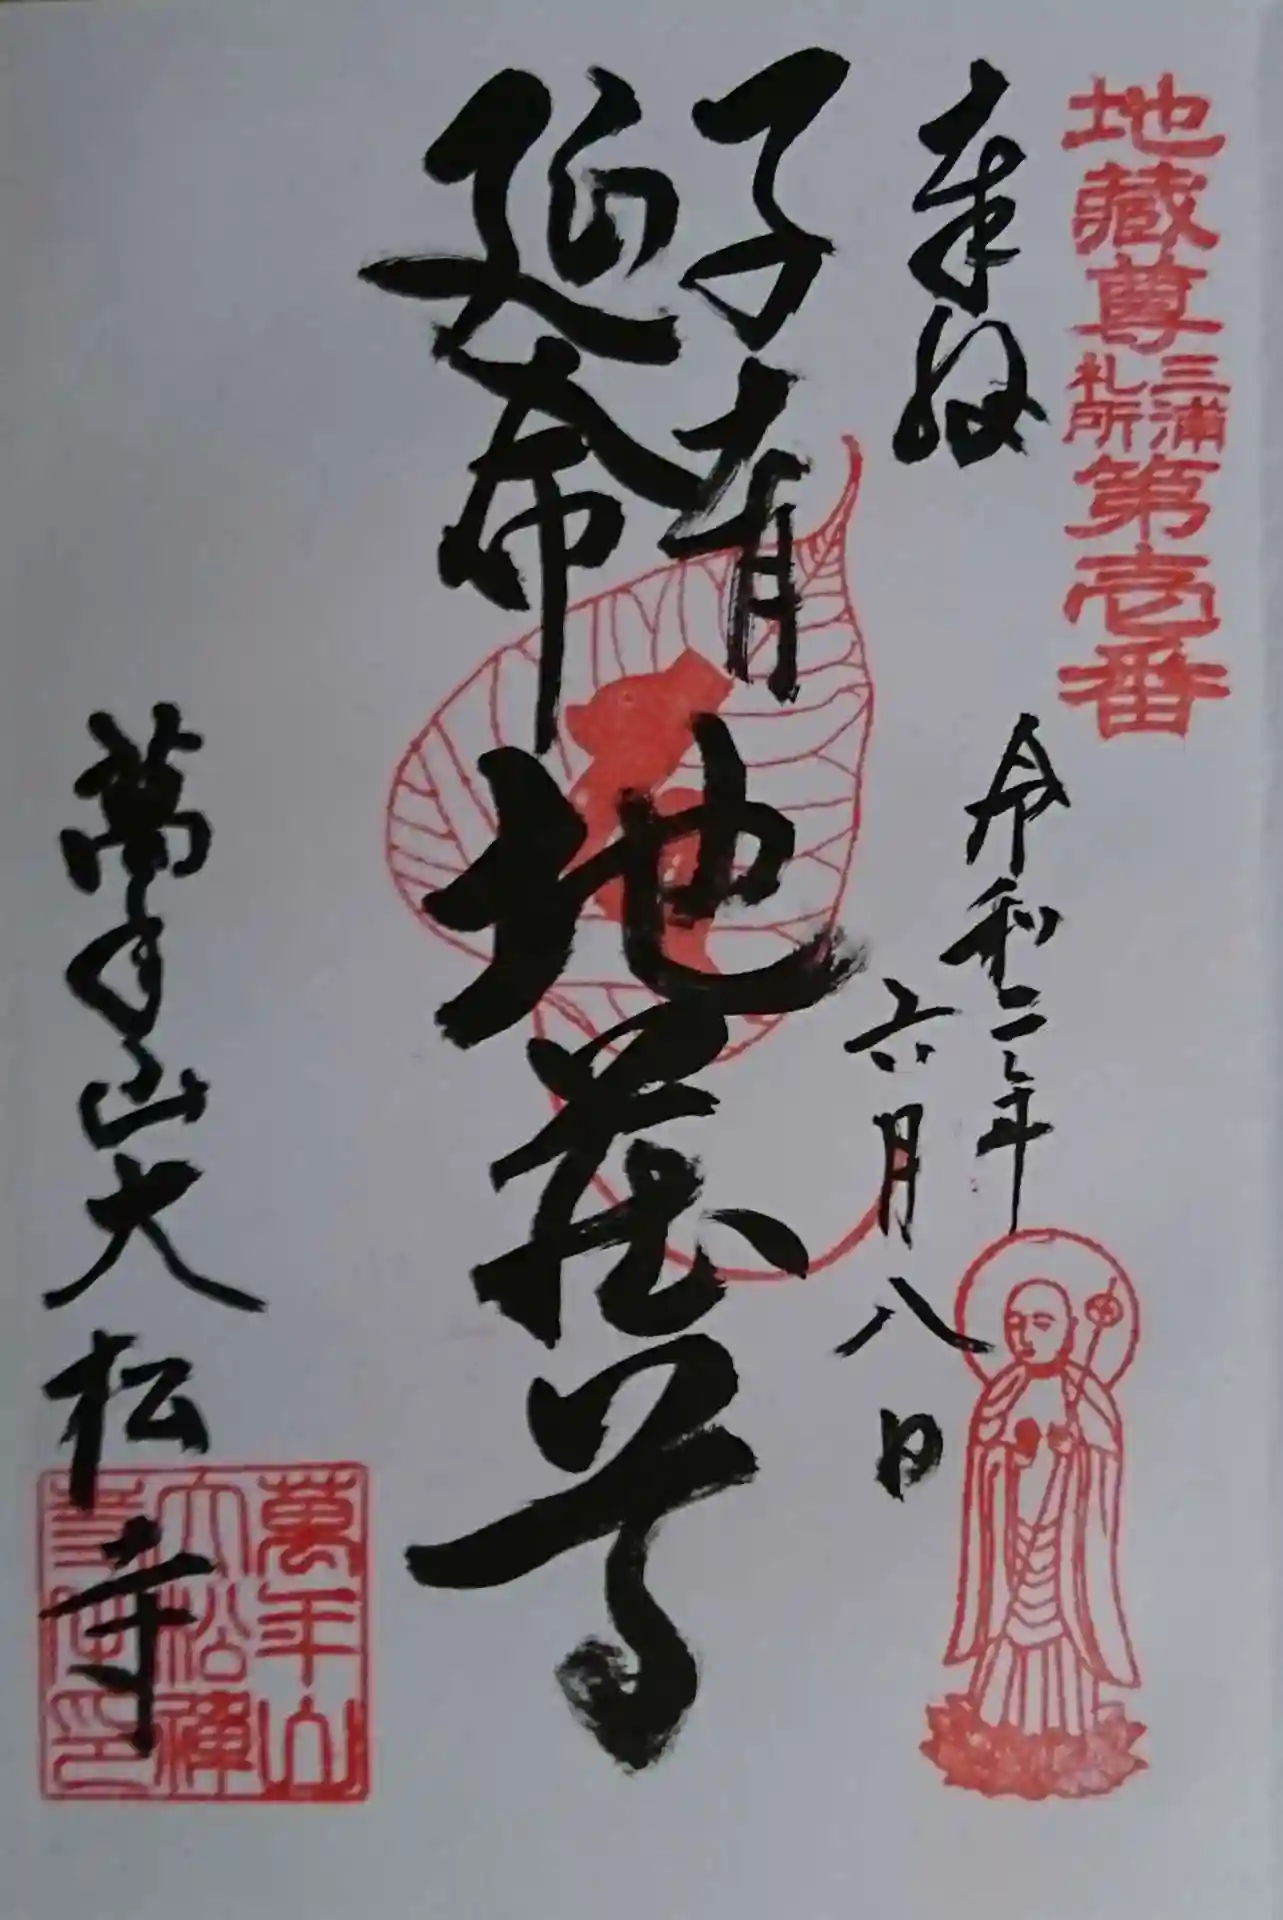 地藏尊三浦札所第壱番
奉拝
令和二年
六月八日
子育
延命
地蔵尊
萬年山大松寺
萬年山
大松禅
寺佛印